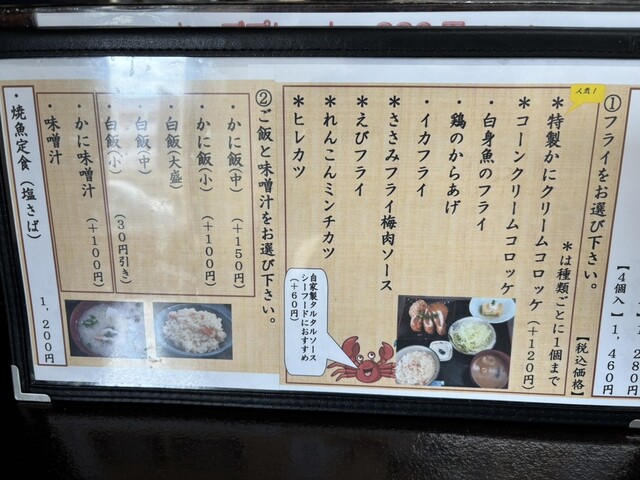 【4個入】1,460円
①フライをお選び下さい。
*は種類ごとに1個まで
【税込価格】
人気!
*特製かにクリームコロッケ(+120円)
*コーンクリームコロッケ
・白身魚のフライ
・鶏のからあげ
・イカフライ
*ささみフライ梅肉ソース
*えびフライ
*れんこんミンチカツ
*ヒレカツ
自家製タルタルソース
シーフードにおすすめ
(+60円)
②ご飯と味噌汁をお選び下さい。
・かに飯(中)(+150円)
・かに飯(小)(+100円)
・白飯(大盛)
・白飯(中)
・白飯(小)(30円引き)
・かに味噌汁(+100円)
・味噌汁
・焼魚定食(塩さば)1,200円